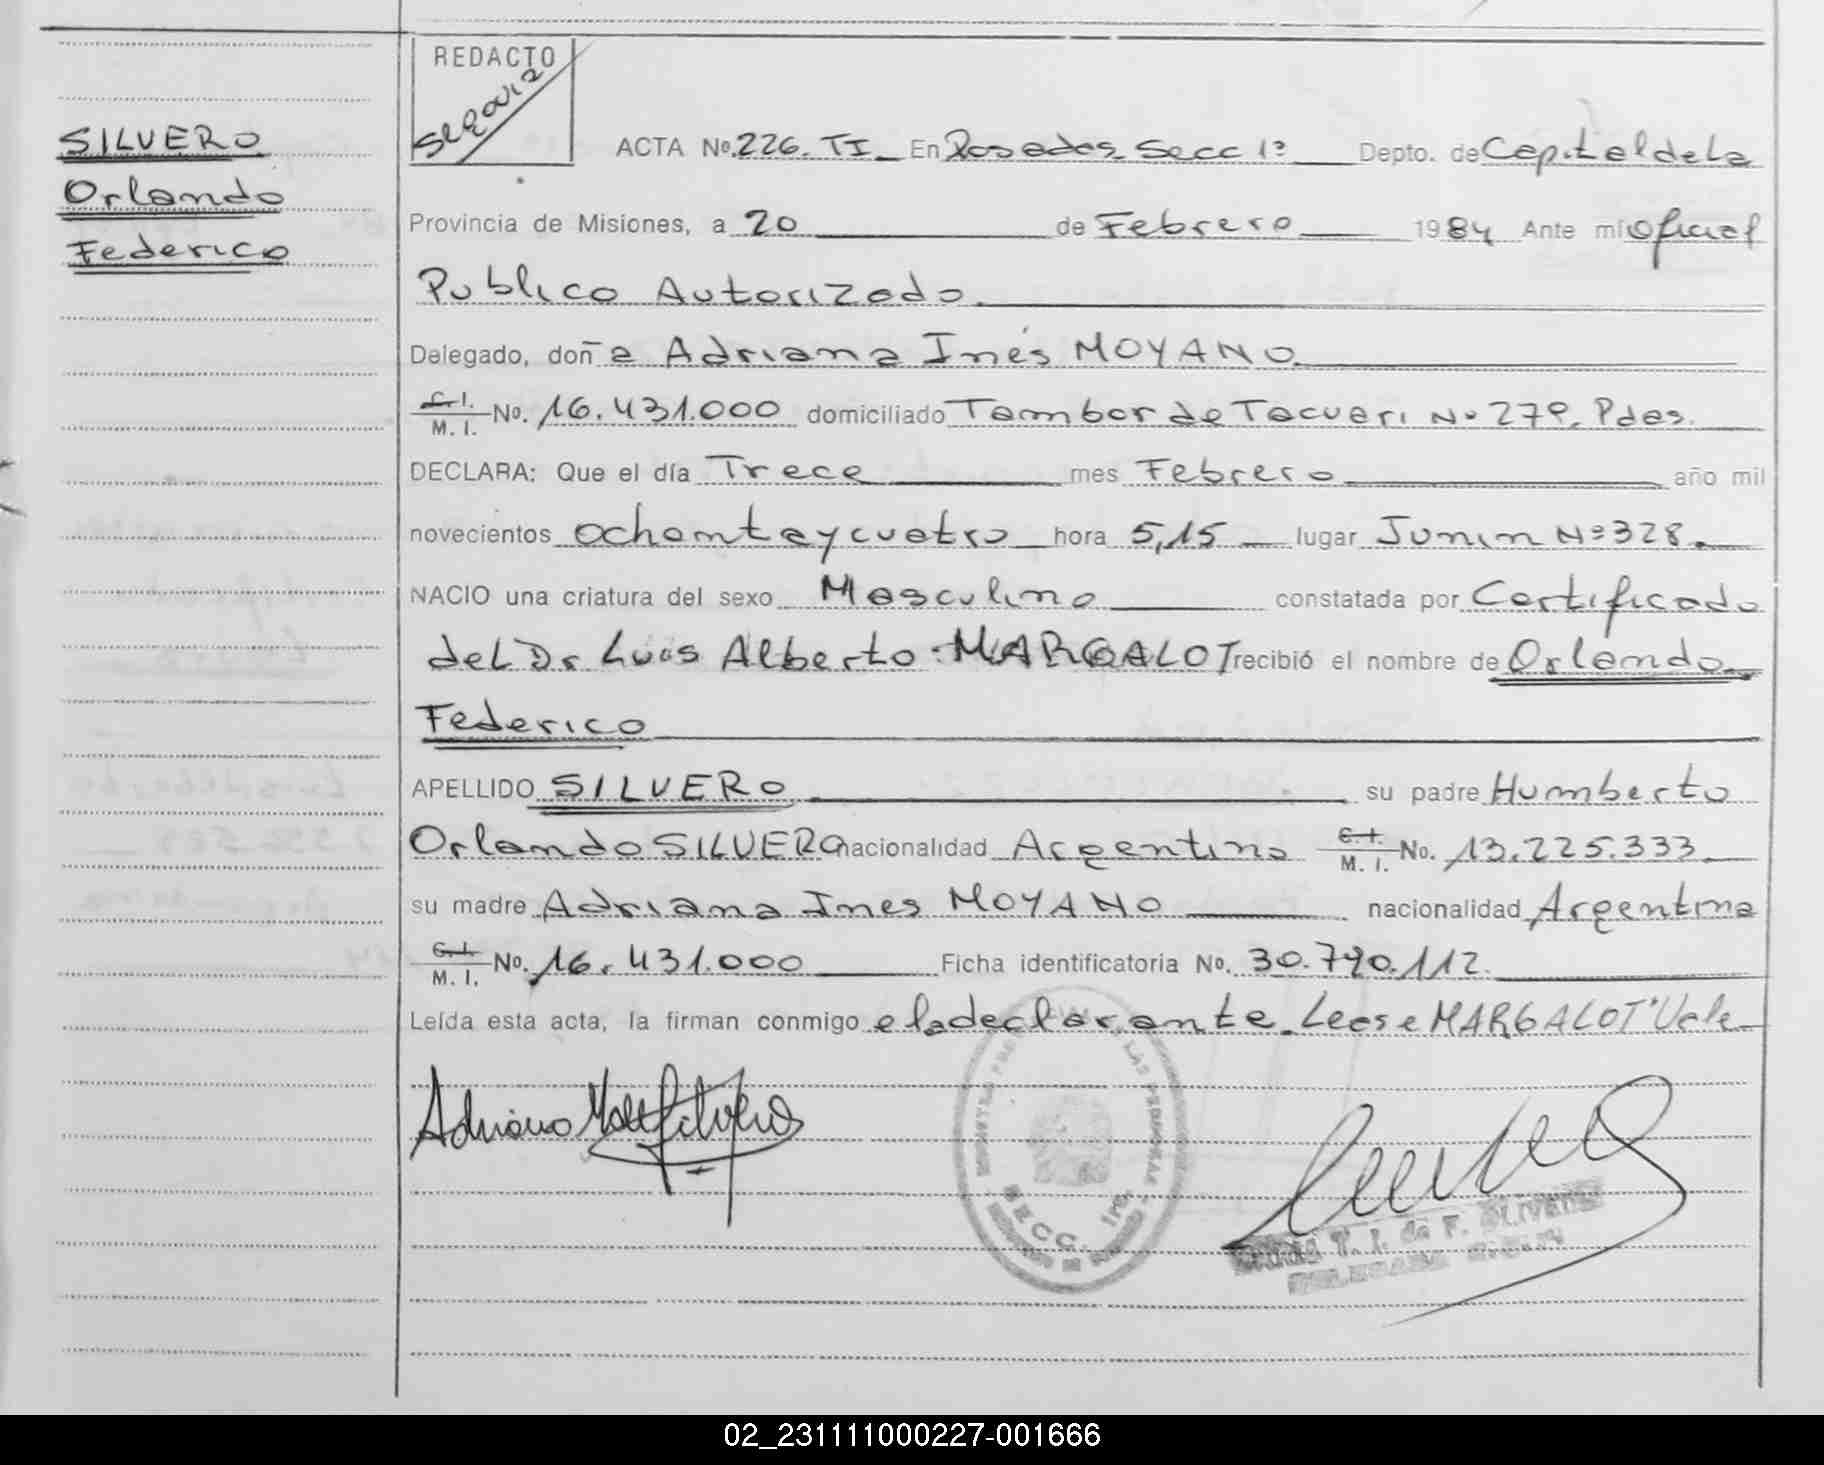 SILVERO
Orlando
Federico
REDACTO
Segovia
ACTA No. 226. TI En Posadas. Secc 1ª Depto. de Capital de La
Provincia de Misiones, a 20 de Febrero 1984 Ante mí Oficial
Publico Autorizado.
Delegado, doña Adriana Inés MOYANO.
C.I. M. I. No. 16.431.000 domiciliado Tambor de Tacuari Nº 279. Pdas.
DECLARA: Que el día Trece mes Febrero año mil
novecientos ochenta y cuatro hora 5,15 lugar Junin Nº 328.
NACIO una criatura del sexo Masculino constatada por Certificado
del Dr Luis Alberto MARGALOT recibió el nombre de Orlando
Federico
APELLIDO SILVERO su padre Humberto
Orlando SILVERO nacionalidad Argentina C.I. M. I. No. 13.225.333
su madre Adriana Ines MOYANO nacionalidad Argentina
C.I. M. I. No. 16.431.000 Ficha identificatoria No. 30.790.112.
Leída esta acta, la firman conmigo e la declarante. Lease MARGALOT "Vale
Adriana
SECC. 1ra.
T. I. de F. OLIVERA
DELEGADA
02_231111000227-001666